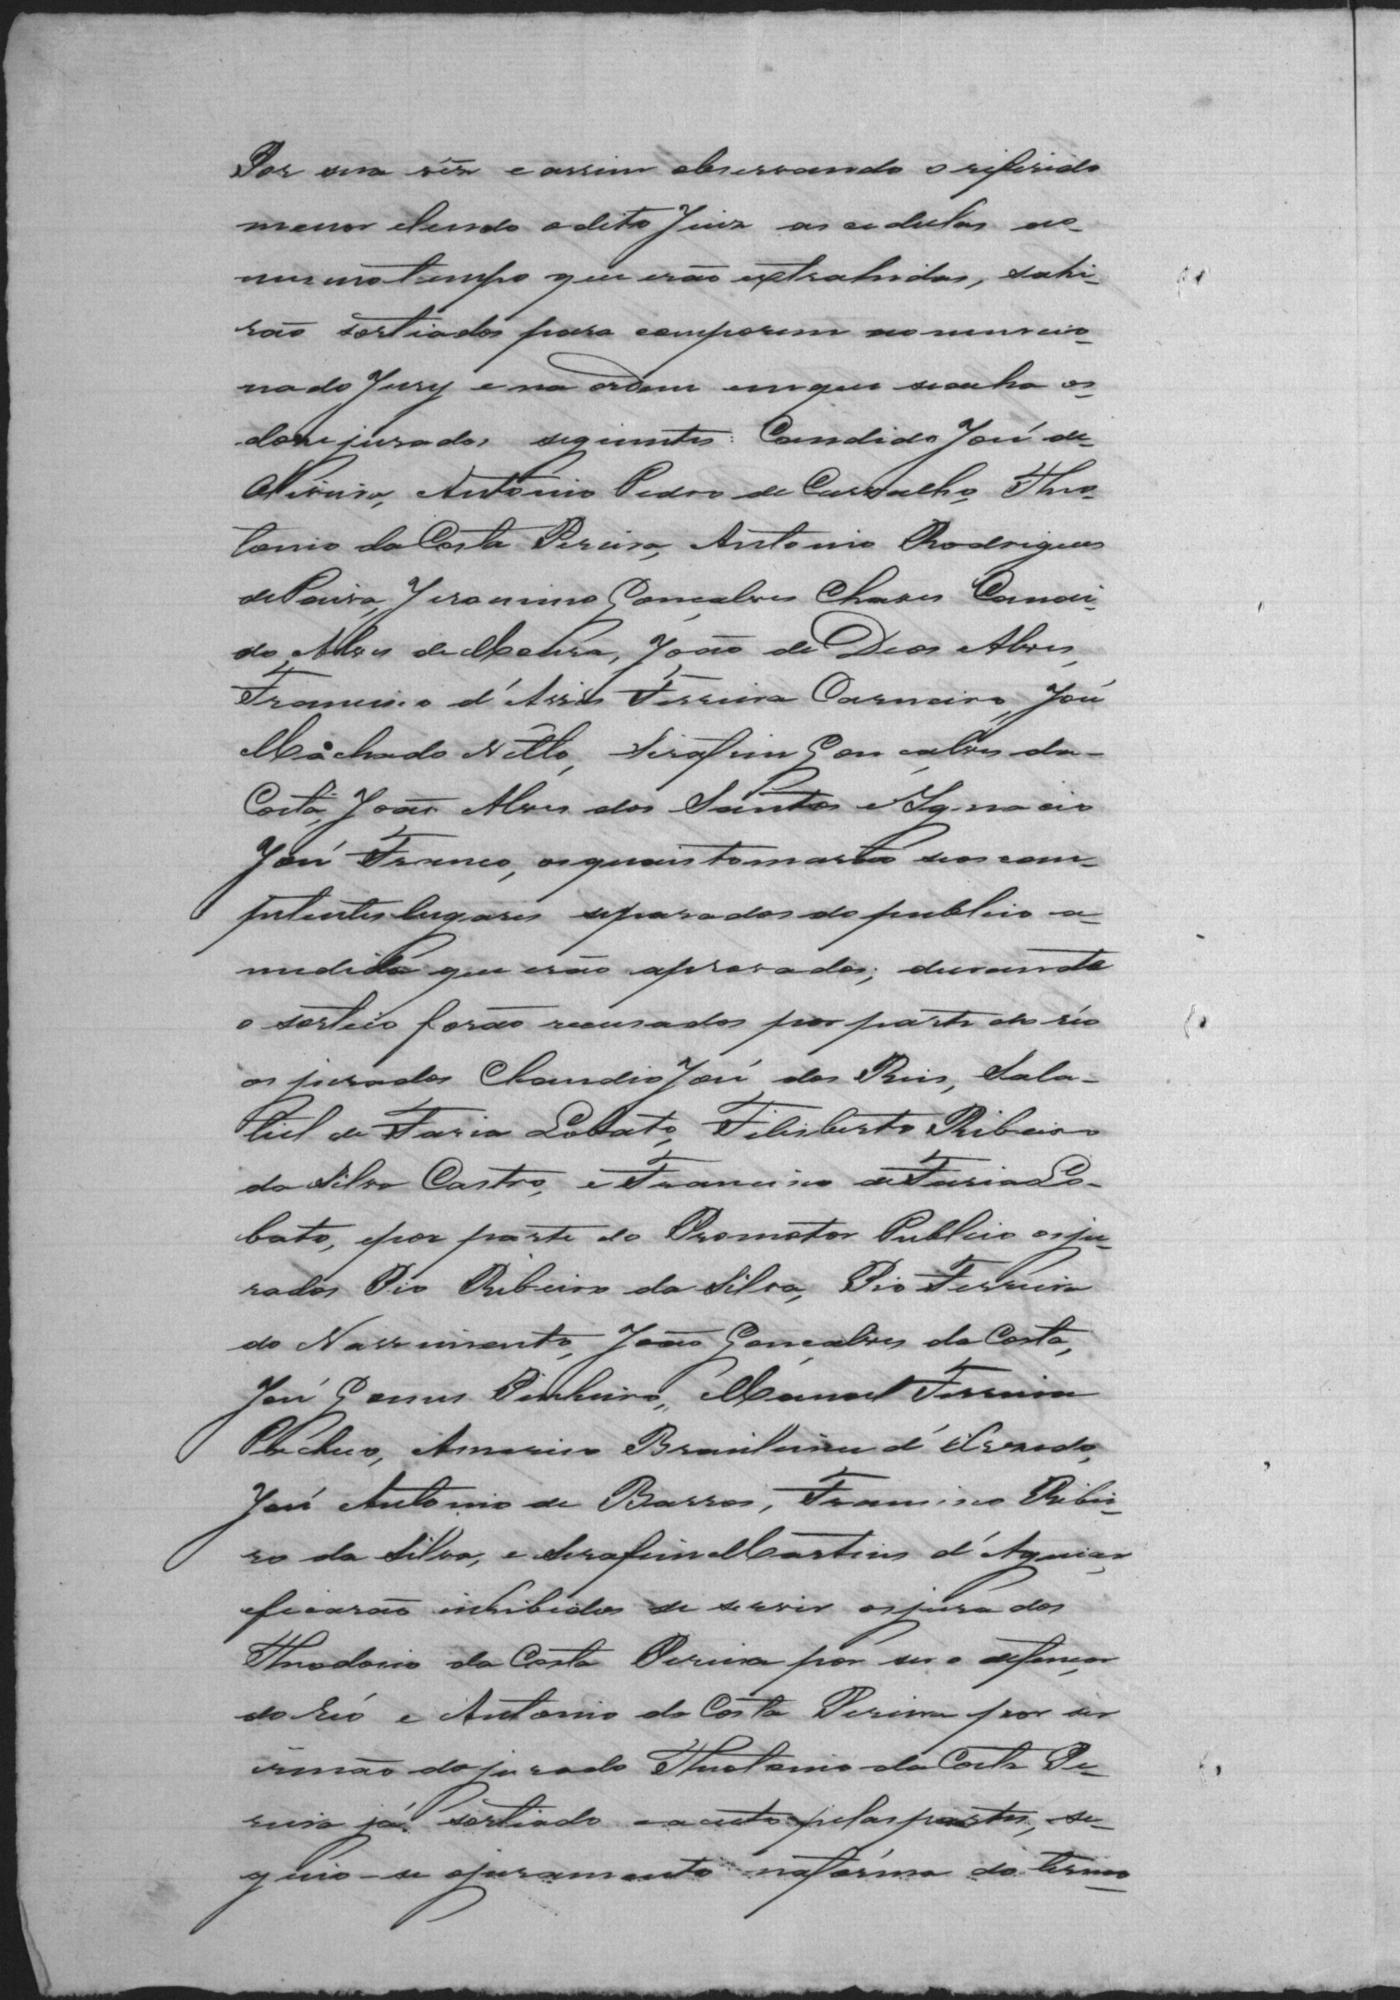 Por sua vêz e assim observando o referido
menor e lendo o dito Juiz as cedulas ao
mesmo tempo que erão extrahidas, sahi-
rão sortiados para comporem o
Jury e na ordem em que se acha os
doze jurados seguintes: Candido José de
Oliveira, Antonio Pedro de Carvalho, Theo-
tonio da Costa Pereira, Antonio Rodrigues
de Paiva, Jeronimo Gonçalves Chaves Candi-
do Alves de Moura, João de Deos Alves,
Francisco d'Assis Ferreira Carneiro, José
Machado Netto, Serafim Gonçalves da
Costa, João Alves dos Santos e Ignacio
José Franco, os quais tomarão seos com-
petentes lugares separados do publico a
medida que erão aprovados; durante
o sorteio forão recusados por parte do réo
os jurados Claudio José dos Reis, Sala-
tiel de Faria Lobato, Felisberto Ribeiro
da Silva Castro, e Francisco de Faria Lo-
bato, e por parte do Promotor Publico os ju-
rados Pio Ribeiro da Silva, Pio Ferreira
do Nascimento, João Gonçalves da Costa,
José Gomes Pinheiro, Manoel Ferreira
Pacheco, Americo Brasileiro d'
José Antonio de Barros, Francisco Ribei-
ro da Silva, e Serafim Martins d'Aguiar,
e ficarão inhibidos de servir os jurados
Theodosio da Costa Pereira por ser o defensor
do réo e Antonio da Costa Pereira por ser
irmão do jurado Theotonio da Costa Pe-
reira já sortiado e aceito pelas partes, se-
guio-se o juramento na forma do termo